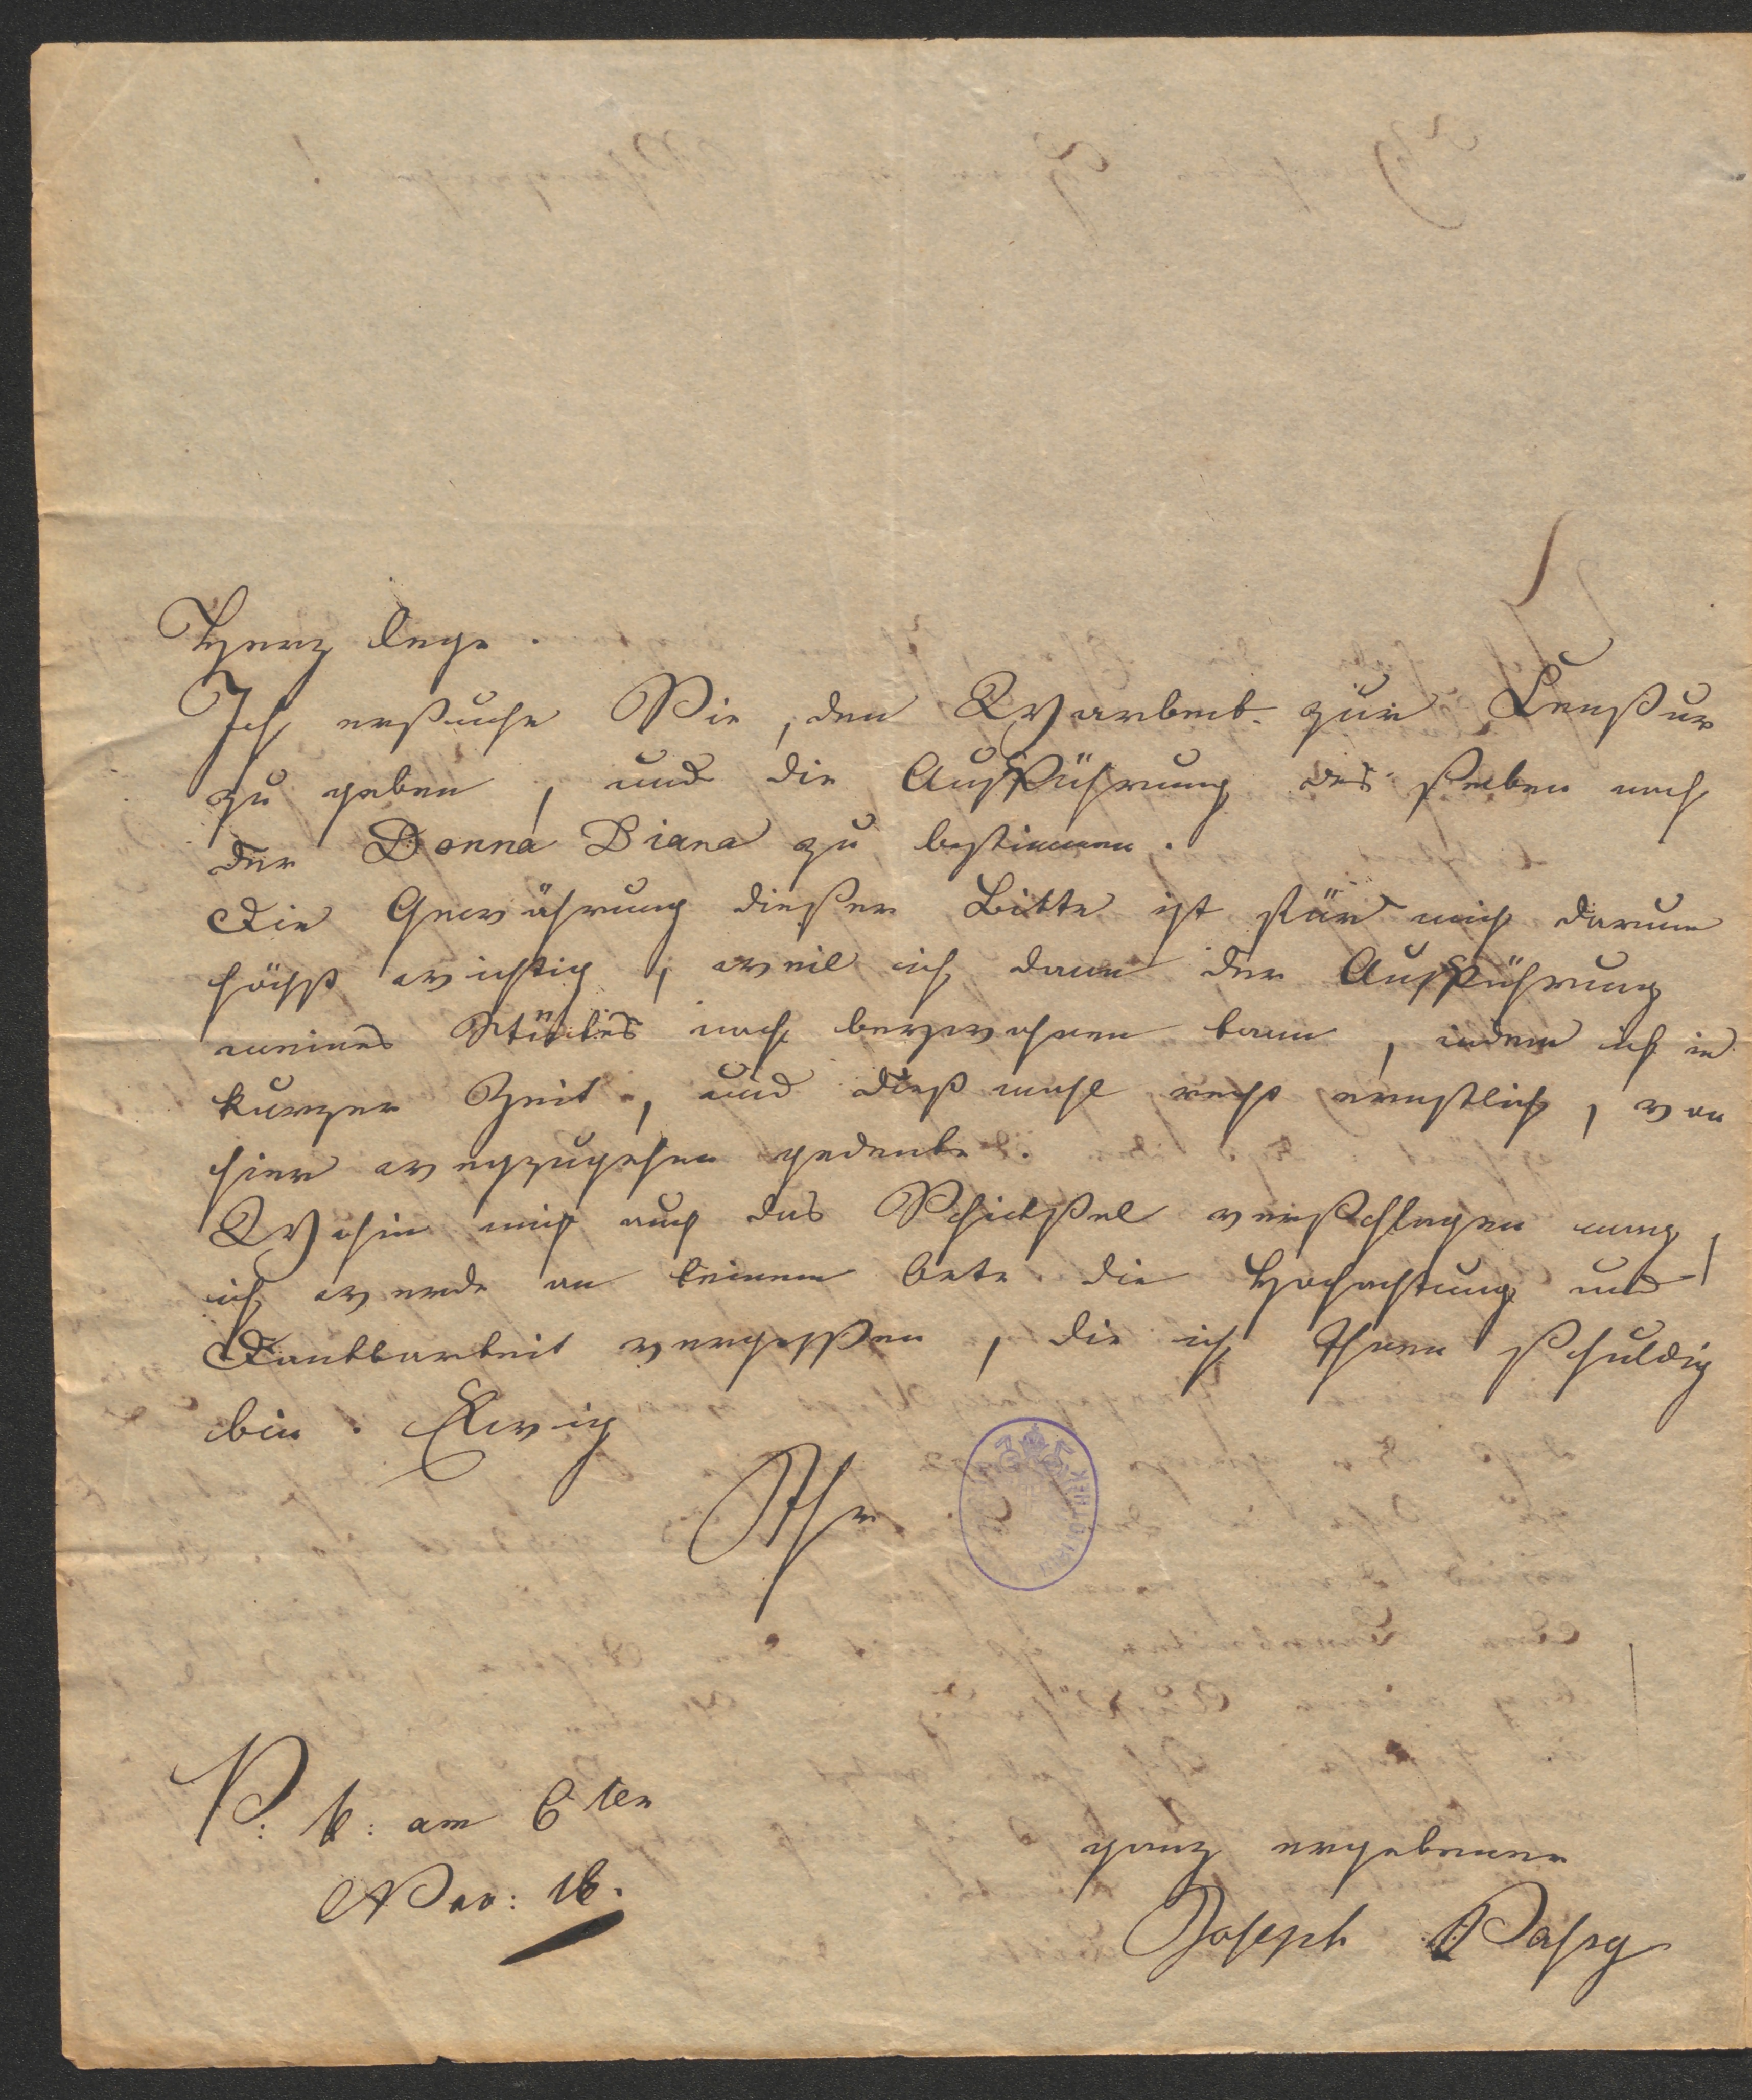 Herz lege.
Ich ersuche Sie, den Warbeck zur Censur
zu geben, und die Aufführung des selben nach
der Donna Diana zu bestimmen.
Die Gewährung dieser Bitte ist für mich darum
höchst wichtig, weil ich dann der Aufführung
meines Stückes noch beywohnen kann, indem ich in
kurzer Zeit, und dieß mahl recht ernstlich, von
hier wegzugehen gedenke.
Wohin mich auch das Schicksal verschlagen mag,
ich werde an keinem Orte die Hochachtung und
Dankbarkeit vergessen, die ich Ihnen schuldig
bin. Ewig
Ihr
P. k: am 6ten
Nov: 16.
ganz ergebener
Joseph